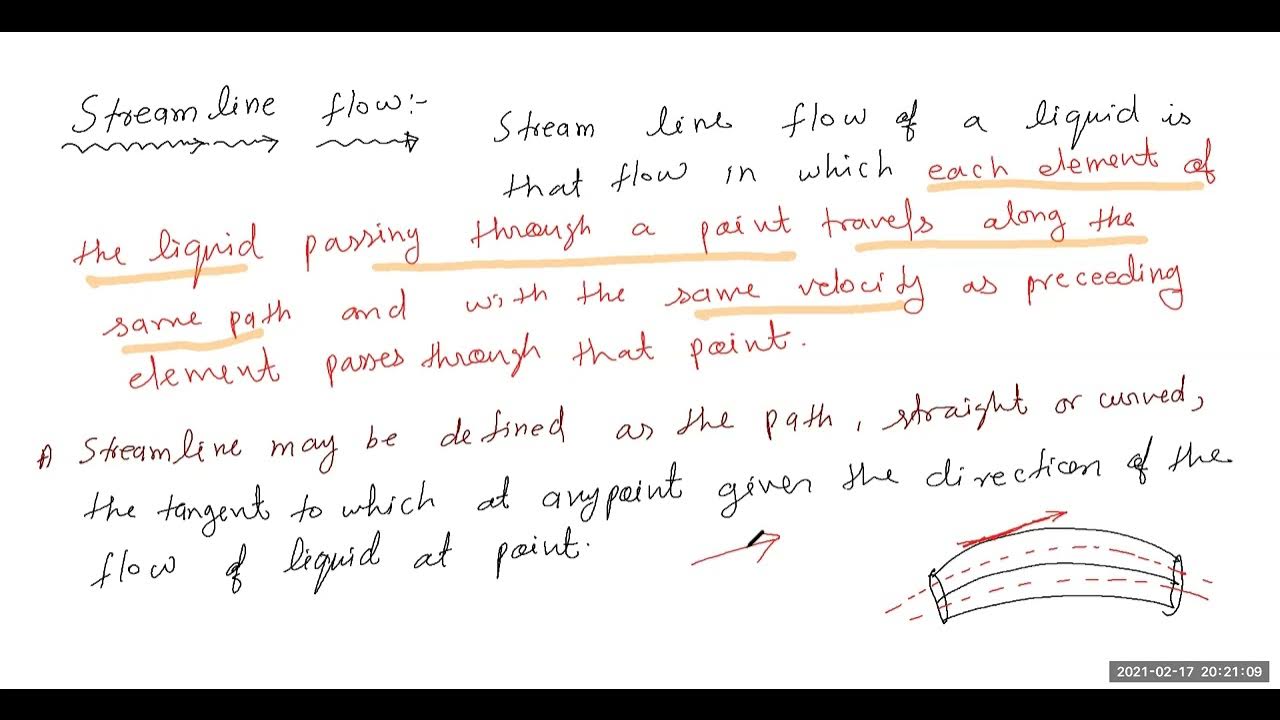 Stream line flow:- Stream line flow of a liquid is
that flow in which each element of
the liquid passing through a point travels along the
same path and with the same velocity as preceeding
element passes through that point.
A Streamline may be defined as the path, straight or curved,
the tangent to which at any point given the direction of the
flow of liquid at point.
2021-02-17 20:21:09